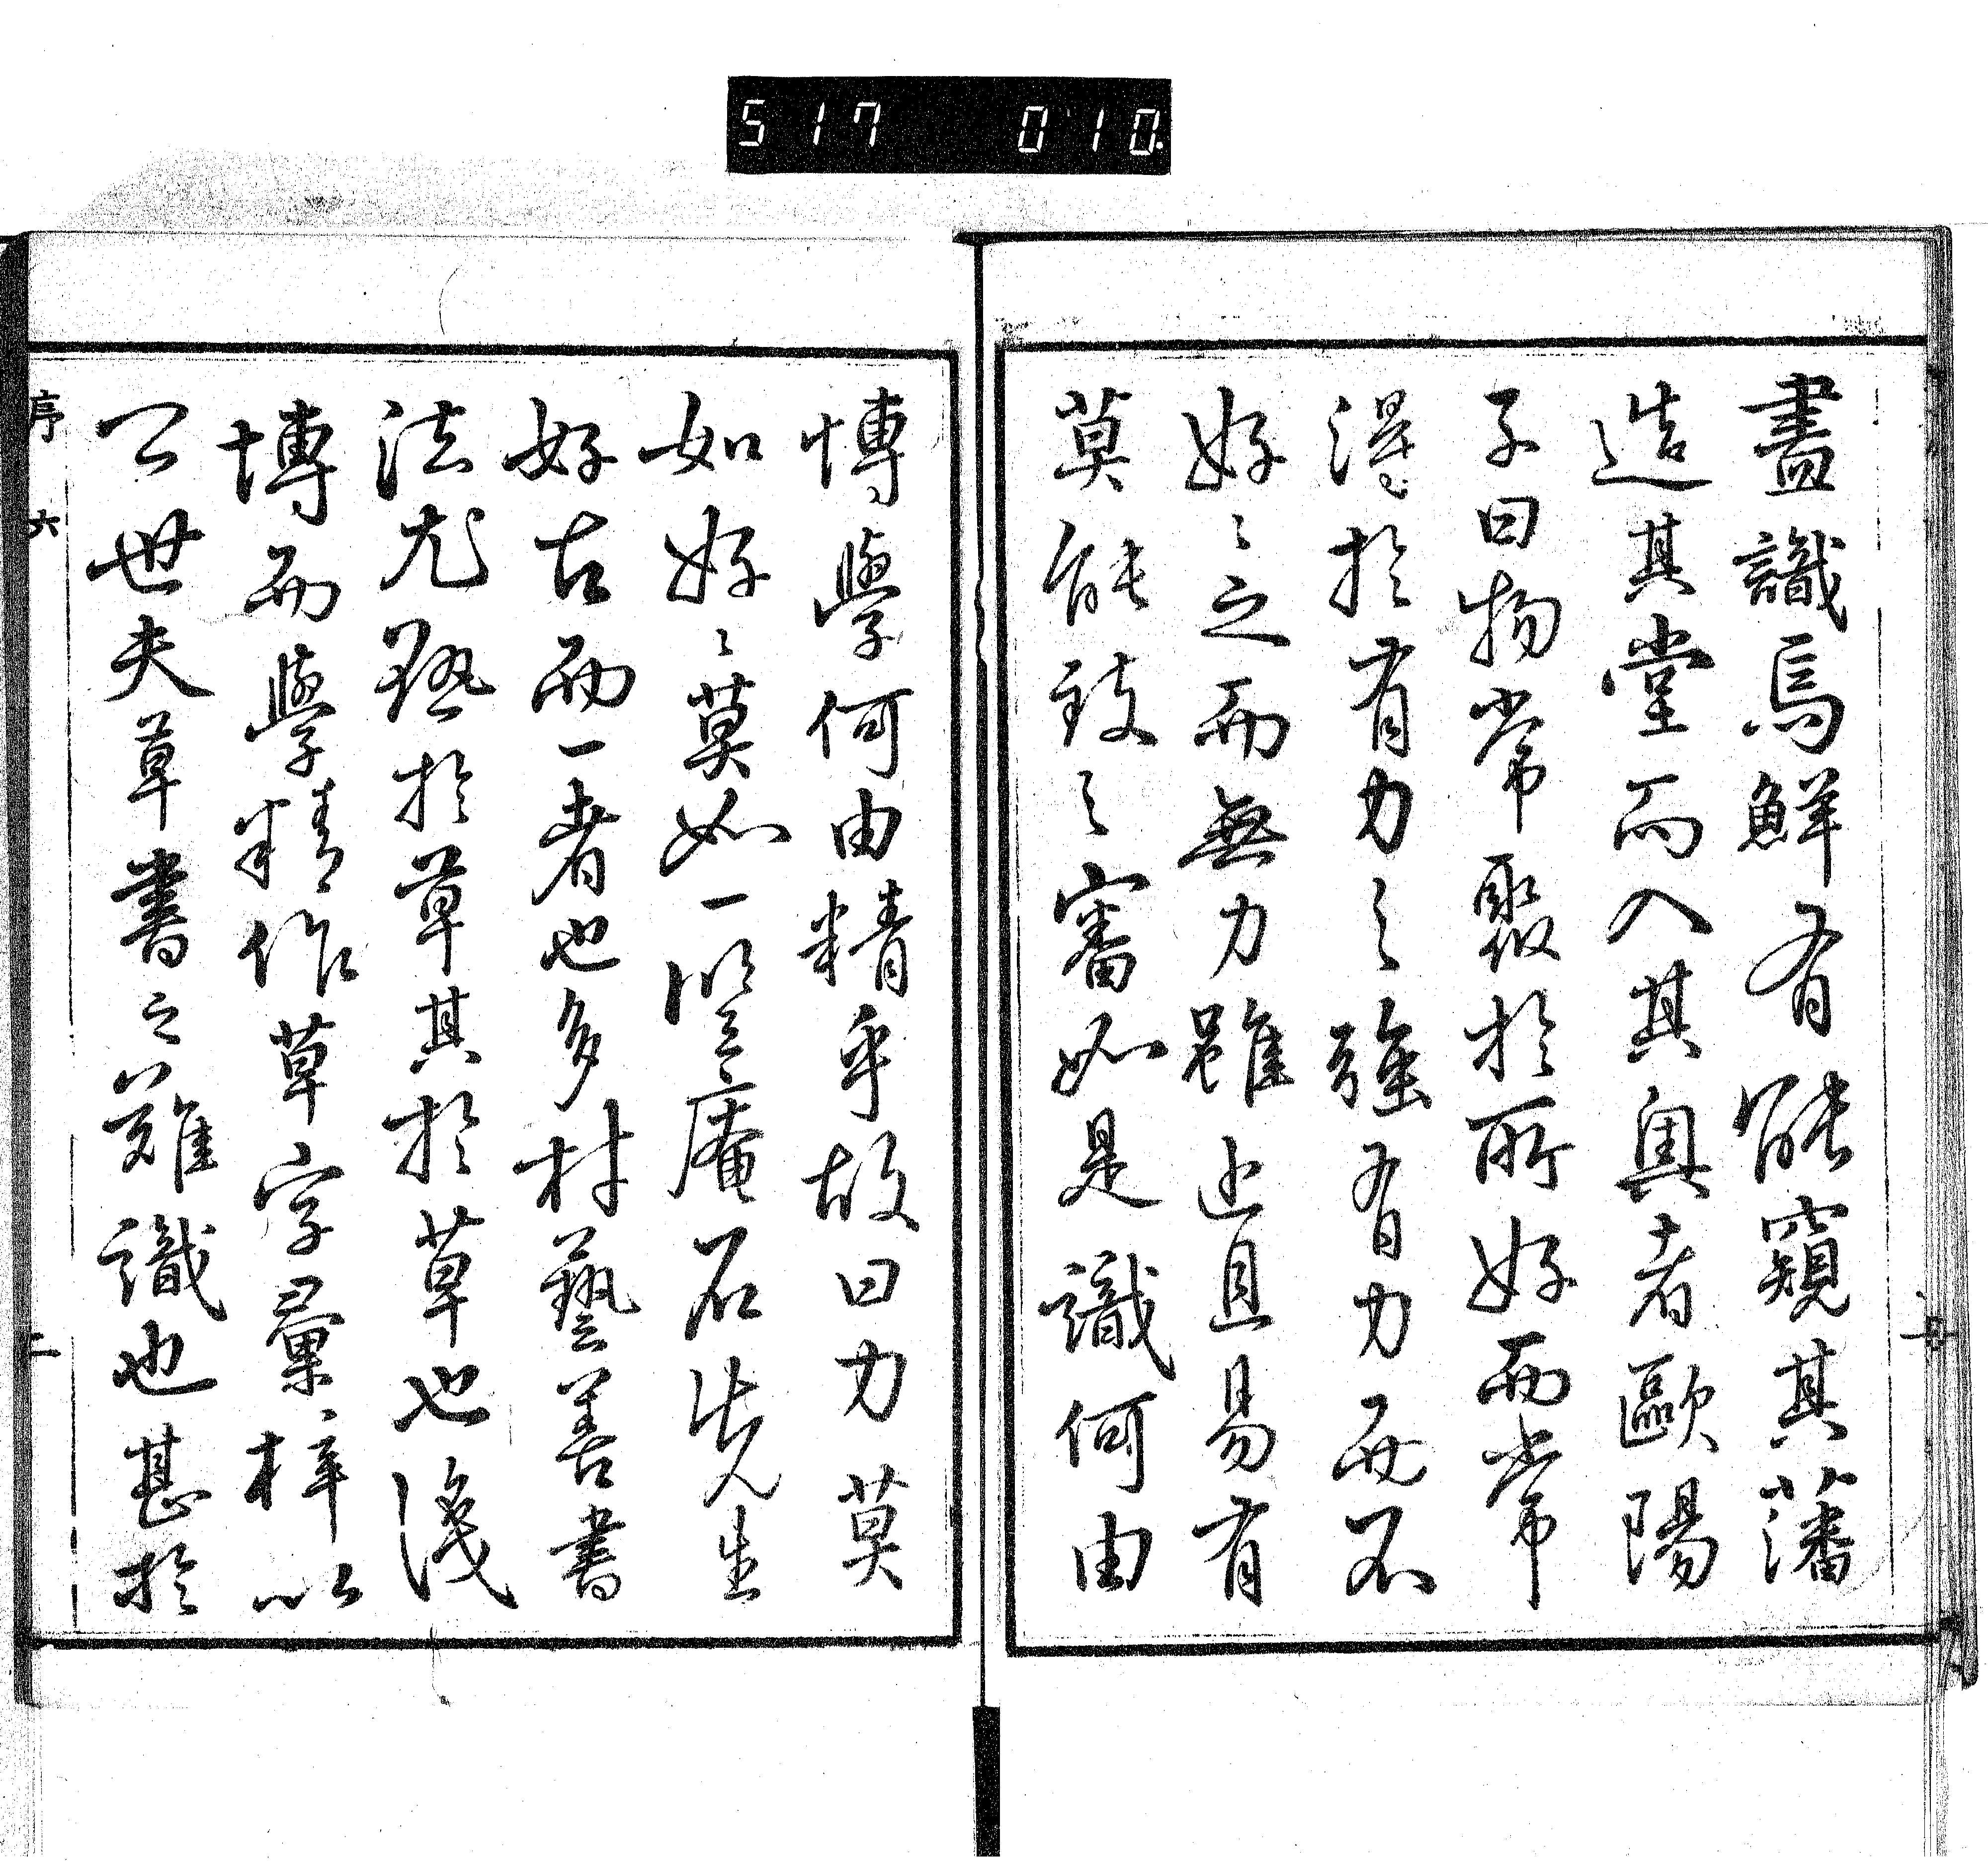 517 010.
盡識焉鮮有能窺其藩
造其堂而入其奧者歐陽
子曰物常聚於所好而常
得於有力之強有力而不
好〻之而無力雖近且易有
莫能致之審如是識何由
博學何由精乎故曰力莫
如好〻莫如一豎庵石先生
好古而一者也多材藝善書
法尤熟於草其於草也識
博而學精作草字彙梓以
公世夫草書之難識也甚於
序 六 二